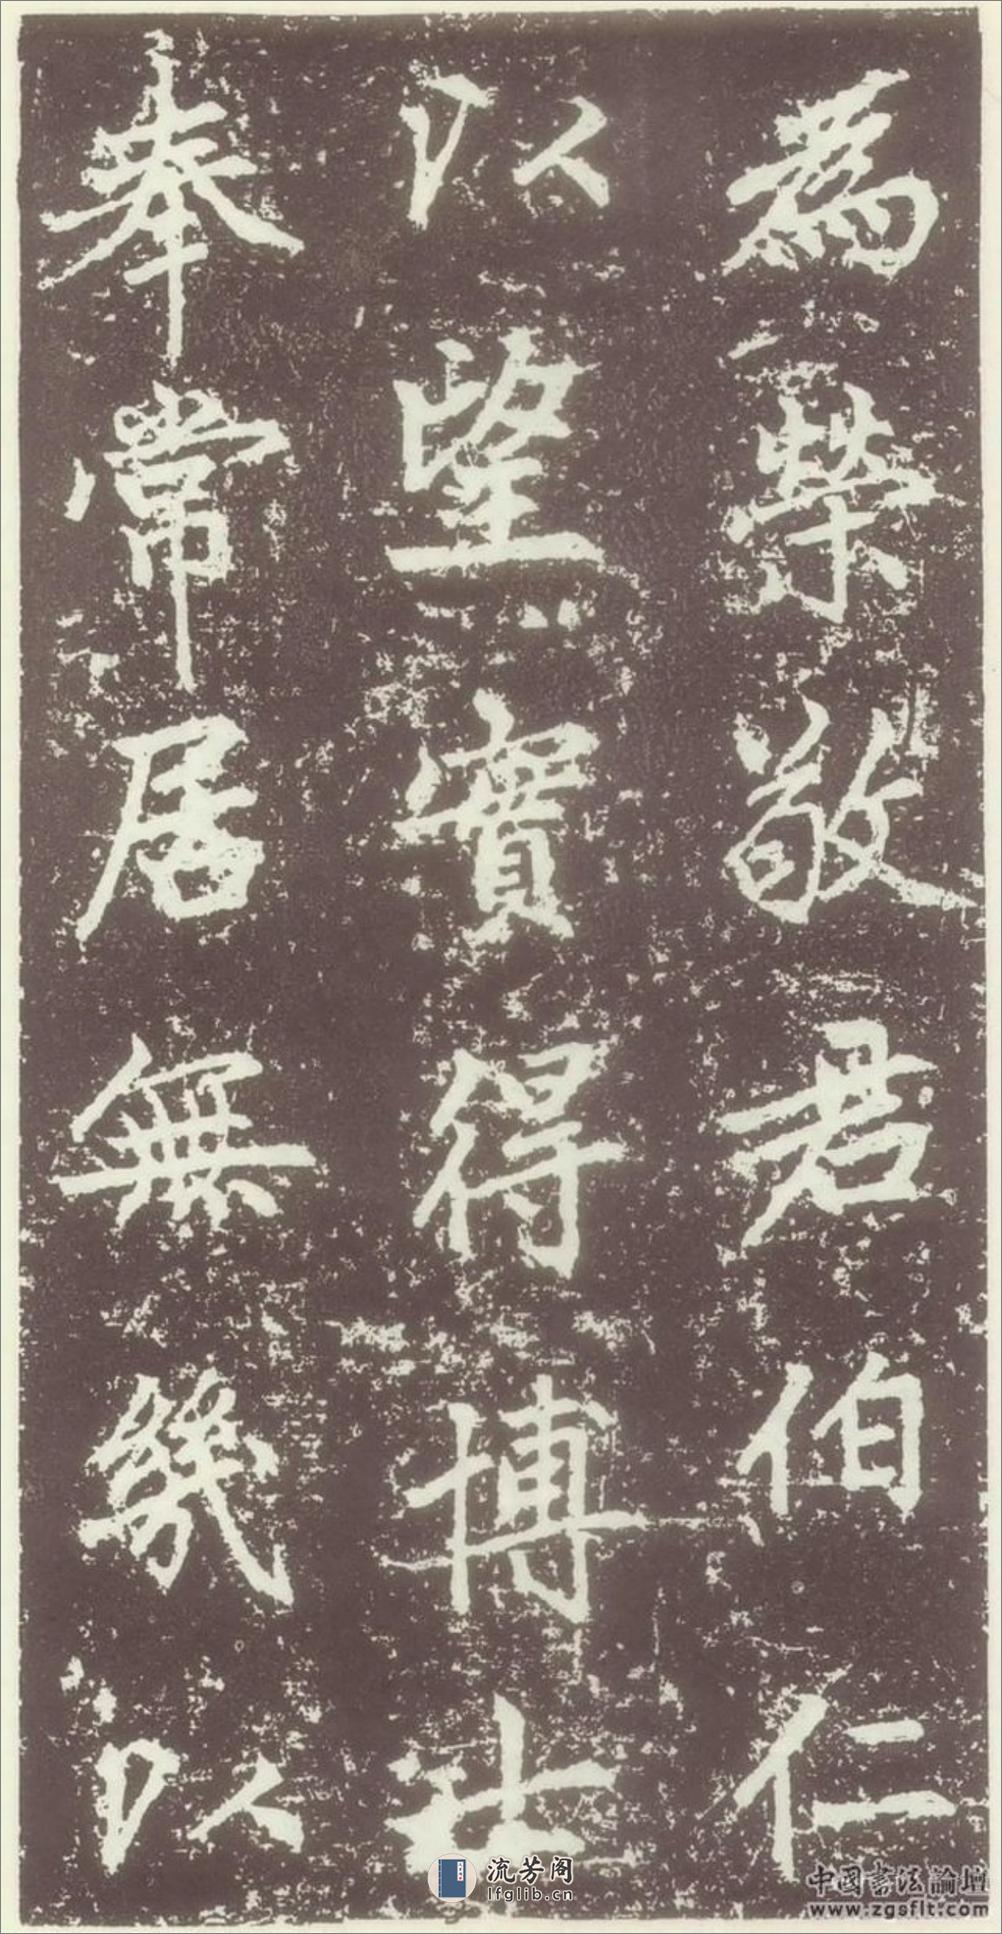 為榮敬君伯仁
以望實得博士
奉常居無幾以
流芳阁
lfglib.cn
中國書法論壇
www.zgsflt.com